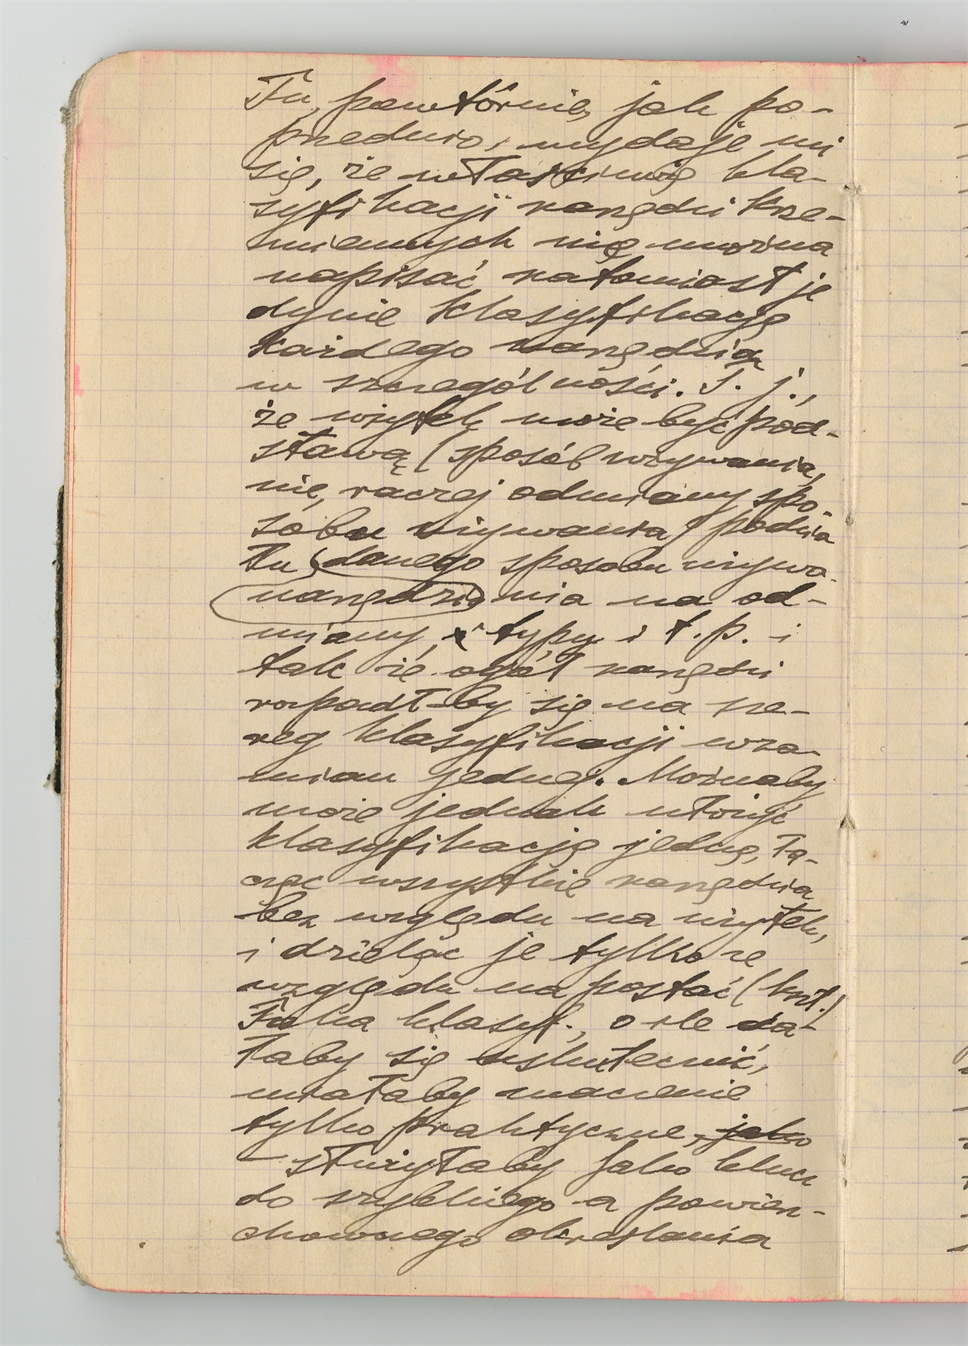 Tu, powtórnie, jak po-
przednio, wydaje mi
się, że właściwie kla-
syfikacji narzędzi krze-
miennych nie można
napisać natomiast je
dynie klasyfikację
każdego narzędzia
w szczególności. T. j.,
że użytek może być pod-
stawą (sposób używania,
nie, raczej odmiany spo-
sobu używania) podzia
łu danego sposobu używa-
narzędzia nia na od-
miany, i typy i t. p. i
tak że ogół narzędzi
rozpadł-by się na sze-
reg klasyfikacji wza-
mian jednej. Możnaby
może jednak utwożyć
klasyfikację jedną, łą-
cząc wszystkie narzędzia
bez względu na użytek,
i dzieląc je tylko ze
względu na postać (kszt.)
Taka klasyf., o ile da
łaby się uskutecznić,
miałaby znaczenie
tylko praktyczne, jako
– służyłaby jako klucz
do szybkiego a powierz-
chownego określania